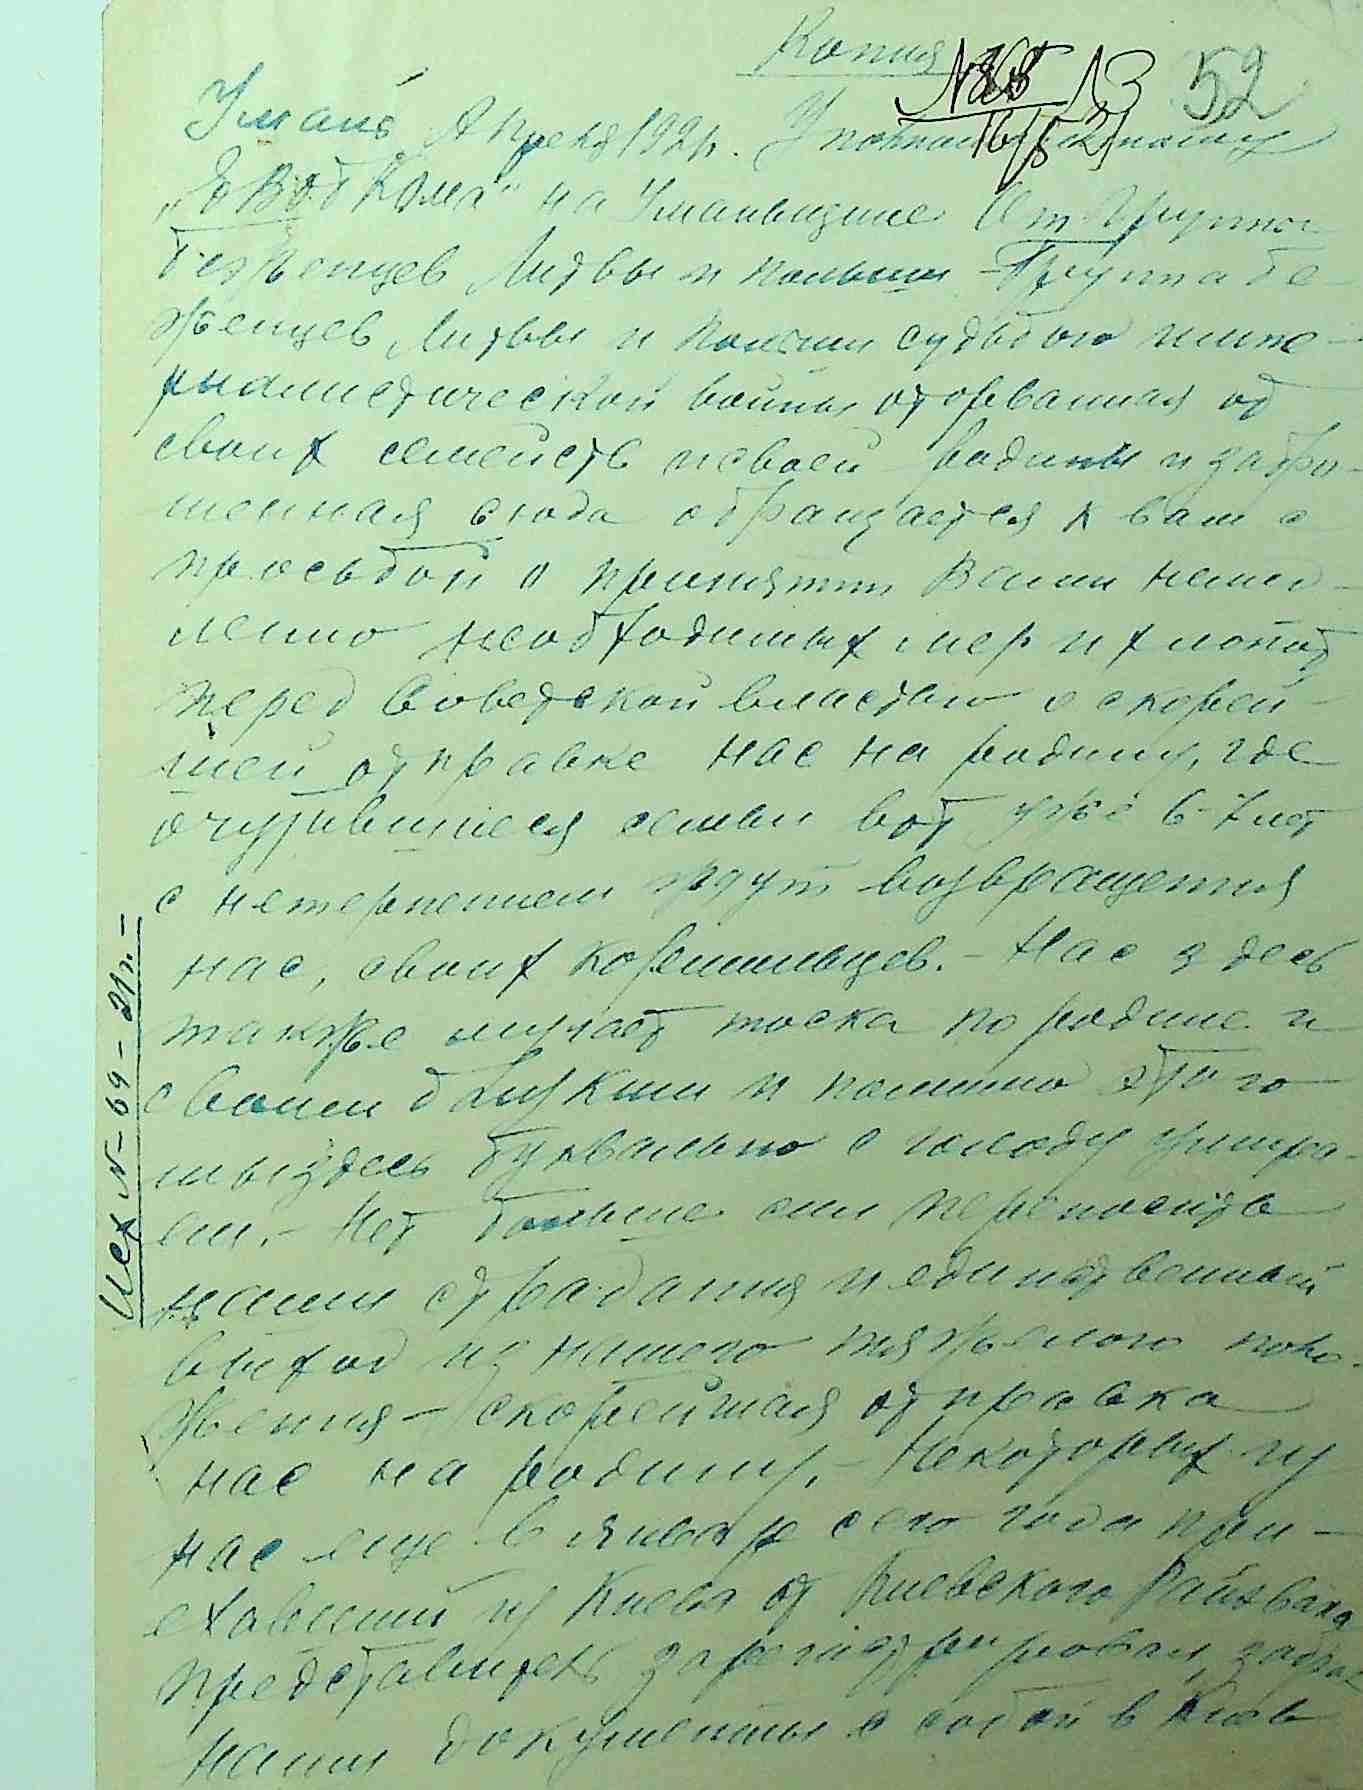 Копия
№ 13 52
16/5 21
Умань Апреля 1921г. Уполномоченному
„Евобкома" на Уманьщине От Группы
беженцев Литвы и Польши - Группа бе-
женцев Литвы и Польши судьбою импе-
риалистической войны оторванная от
своих семейств и своей родины и забро-
шенная сюда обращается к вам с
просьбой о принятии Вами немед-
ленно необходимых мер и хлопот
перед Советской властью о скорей-
шей отправке нас на родину, где
очутившиеся семьи вот уже 6-7 лет
с нетерпением ждут возвращения
нас, своих кормильцев. - Нас здесь
также мучает тоска по родине и
своим близким и помимо этого
мы здесь буквально с голоду умира-
ем. - Нет больше сил переносить
наши страдания и единственный
выход из нашего тяжелого поло-
жения - скорейшая отправка
нас на родину. - Некоторых из
нас еще в январе сего года при-
ехавший из Киева от Киевского
представитель зарегистрировал, забрал
наши документы с собой в Киев
Исх № - 69 - 21г. -